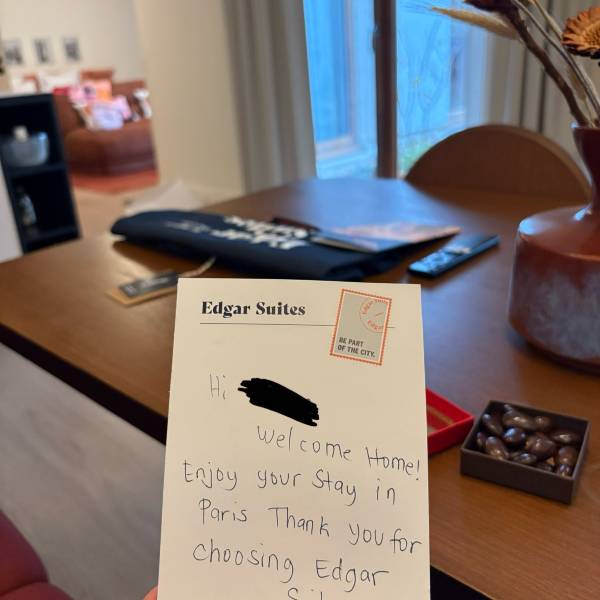 Edgar Suites
BE PART
OF THE CITY.
Hi
Welcome Home!
Enjoy your Stay in
Paris Thank you for
choosing Edgar